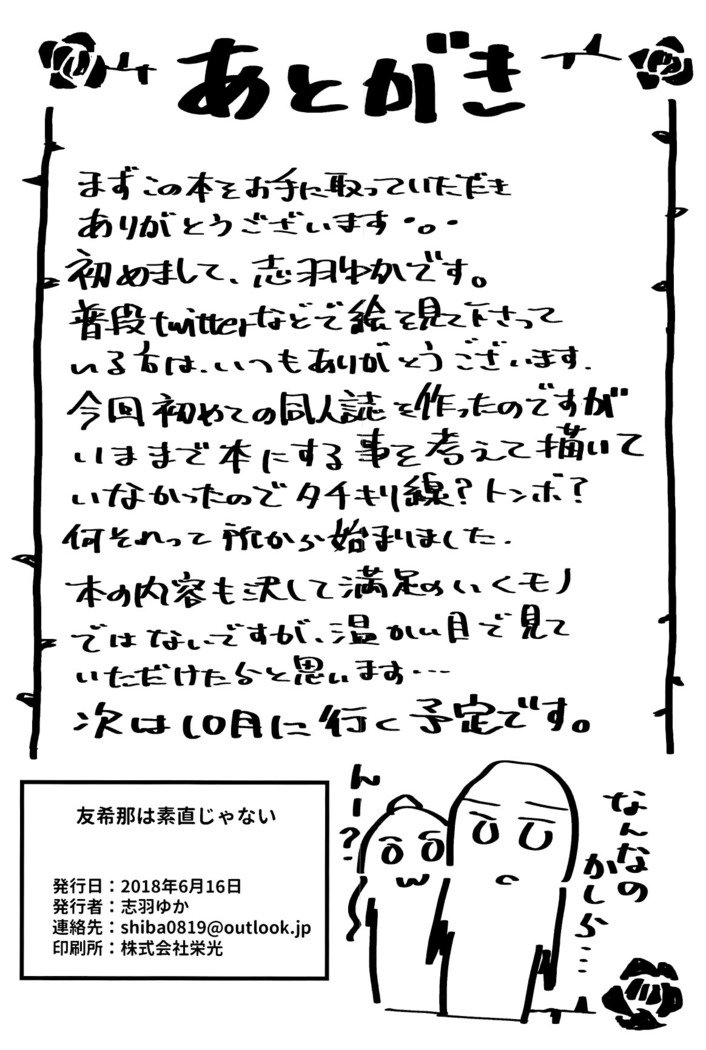 あとがき
まずこの本をお手に取っていただき
ありがとうございます・。・
初めまして、志羽ゆかです。
普段twitterなどで絵を見て下さって
いる方は、いつもありがとうございます.
今回初めての同人誌を作ったのですが
いままで本にする事を考えて描いて
いなかったのでタチキリ線?トンボ?
何それって所から始まりました.
本の内容も決して満足のいくモノ
ではないですが、温かい目で見て
いただけたらと思います・・・
次は10月に行く予定です。
んー?
なんなの
かしら…
友希那は素直じゃない
発行日：2018年6月16日
発行者：志羽ゆか
連絡先：shiba0819@outlook.jp
印刷所：株式会社栄光